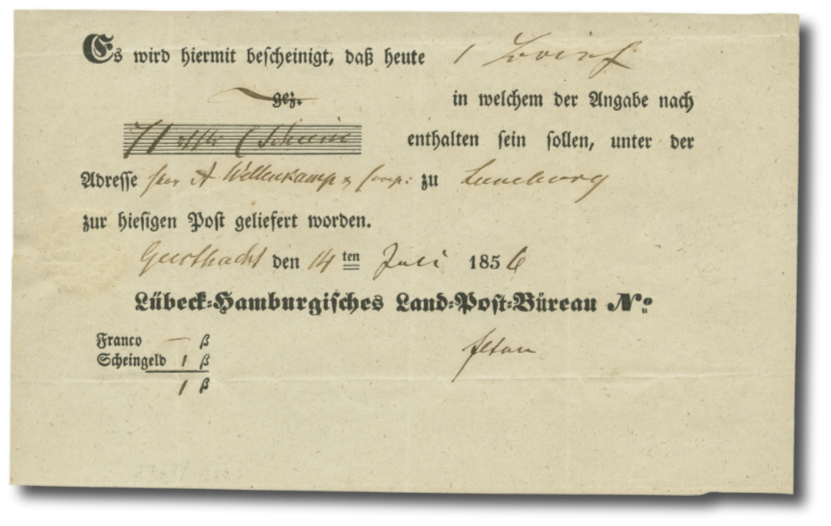 Es wird hiermit bescheinigt, daß heute 1 Brief
gez. in welchem der Angabe nach
71 (Scheine enthalten sein sollen, unter der
Adresse A Wellenkamp & Comp: zu Luneborg
zur hiesigen Post geliefert worden.
Geesthacht den 14 ten Juli 1856
Lübeck-Hamburgisches Land-Post-Büreau No
Franco — ß
Scheingeld 1 ß
1 ß